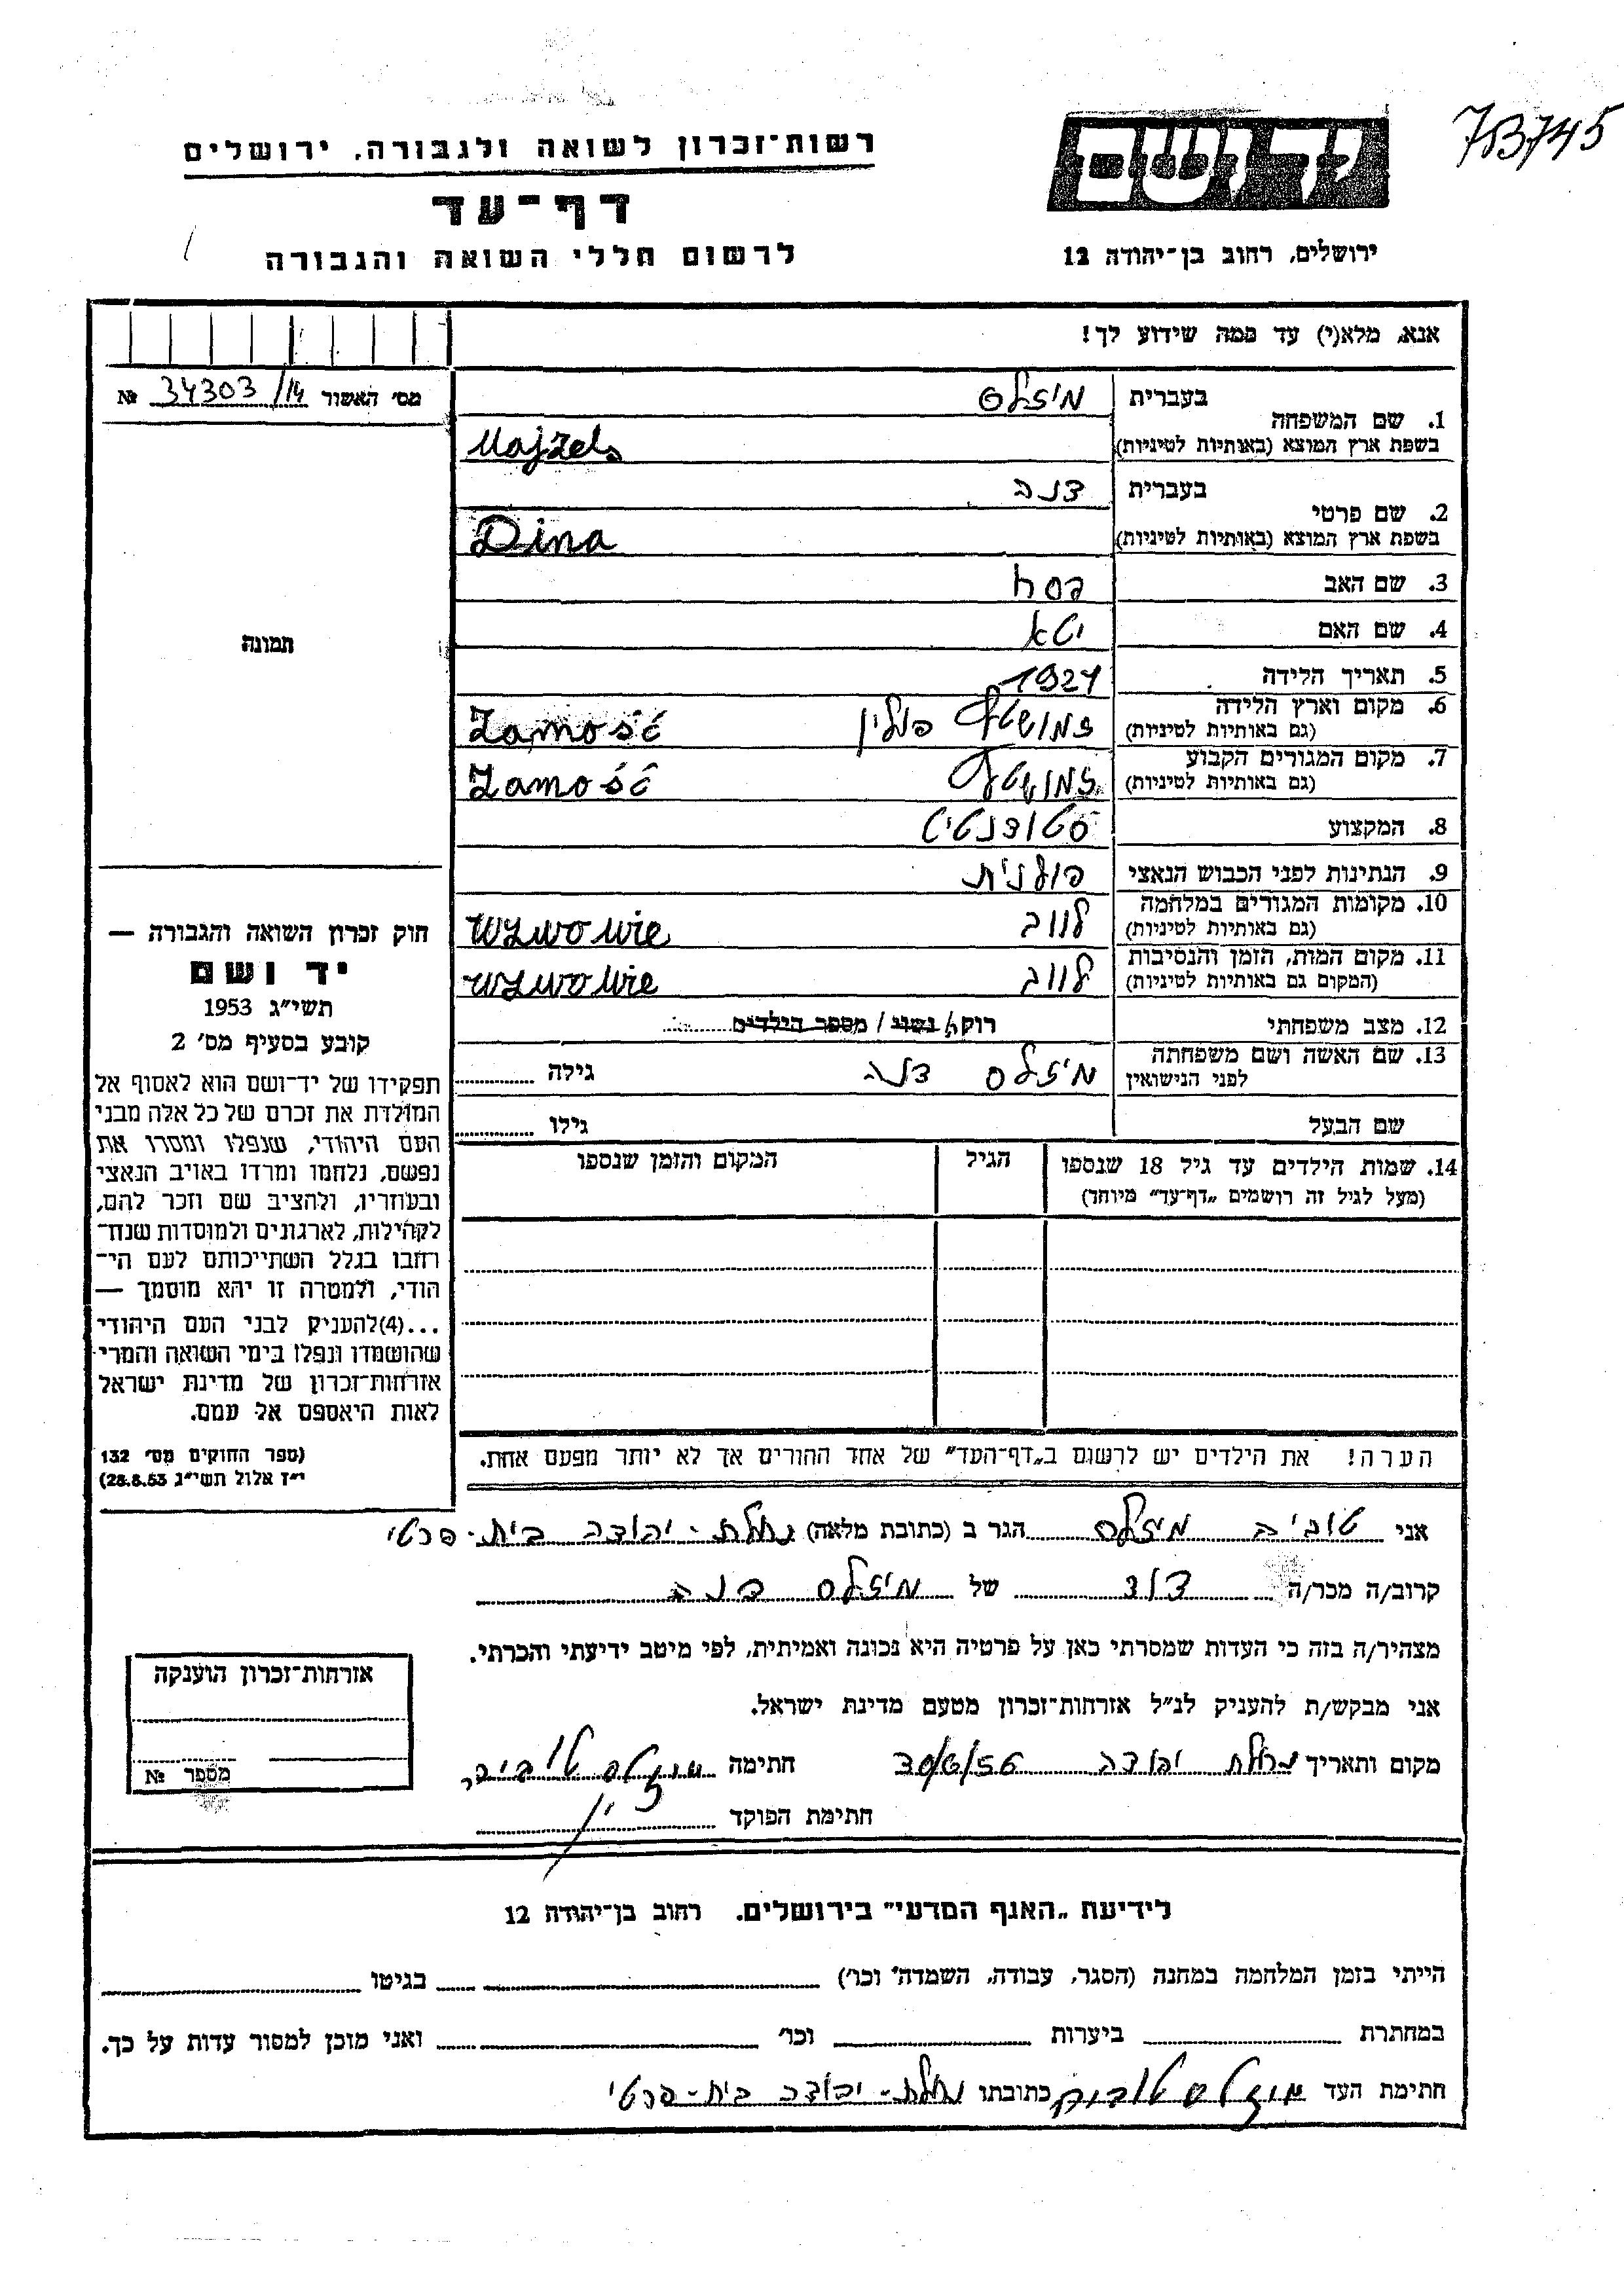 יד ושם
753745
רשות־זכרון לשואה ולגבורה, ירושלים
דף־עד
לרשום חללי השואה והגבורה
ירושלים, רחוב בן־יהודה 12
אנא, מלא(י) עד כמה שידוע לך!
מס׳ האשור 34303/14 №
תמונה
1. שם המשפחה
בעברית מיזלס
בשפת ארץ המוצא (באותיות לטיניות) Majzels
2. שם פרטי
בעברית דנה
בשפת ארץ המוצא (באותיות לטיניות) Dina
3. שם האב פסח
4. שם האם יטא
5. תאריך הלידה 1921
6. מקום וארץ הלידה
(גם באותיות לטיניות) פולין Zamość
7. מקום המגורים הקבוע
(גם באותיות לטיניות) Zamość
8. המקצוע
9. הנתינות לפני הכבוש הנאצי פולנית
10. מקומות המגורים במלחמה
(גם באותיות לטיניות) לווב wLwowie
11. מקום המות, הזמן והנסיבות
(המקום גם באותיות לטיניות) לווב wLwowie
12. מצב משפחתי רוק/ נשוי / מספר הילדים
13. שם האשה ושם משפחתה
לפני הנישואין מיזלס דנה גילה
שם הבעל גילו
14. שמות הילדים עד גיל 18 שנספו הגיל המקום והזמן שנספו
(מעל לגיל זה רושמים „דף־עד״ מיוחד)
הערה! את הילדים יש לרשום ב„דף־העד״ של אחד ההורים אך לא יותר מפעם אחת.
חוק זכרון השואה והגבורה —
יד ושם
תשי״ג 1953
קובע בסעיף מס׳ 2
תפקידו של יד־ושם הוא לאסוף אל
המולדת את זכרם של כל אלה מבני
העם היהודי, שנפלו ומסרו את
נפשם, נלחמו ומרדו באויב הנאצי
ובעוזריו, ולהציב שם וזכר להם,
לקהילות, לארגונים ולמוסדות שנח־
רבו בגלל השתייכותם לעם הי־
הודי, ולמטרה זו יהא מוסמך —
...(4)להעניק לבני העם היהודי
שהושמדו ונפלו בימי השואה והמרי
אזרחות־זכרון של מדינת ישראל
לאות היאספם אל עמם.
(ספר החוקים מס׳ 132
י״ז אלול תשי״ג 28.8.53)
אני טוביה מיזלס הגר ב (כתובת מלאה) נחלת-יהודה בית-פרטי
קרוב/ה מכר/ה דוד של מיזלס דנה
מצהיר/ה בזה כי העדות שמסרתי כאן על פרטיה היא נכונה ואמיתית, לפי מיטב ידיעתי והכרתי.
אני מבקש/ת להעניק לנ״ל אזרחות־זכרון מטעם מדינת ישראל.
מקום ותאריך נחלת יהודה 30/6/56 חתימה מיזלס טוביה
חתימת הפוקד
אזרחות־זכרון הוענקה
מספר №
לידיעת „האגף המדעי״ בירושלים. רחוב בן־יהודה 12
הייתי בזמן המלחמה במחנה (הסגר, עבודה, השמדה׳ וכו׳) בגיטו
במחתרת ביערות וכו׳ ואני מוכן למסור עדות על כך.
חתימת העד מיזלס טוביה כתובתו נחלת-יהודה בית-פרטי